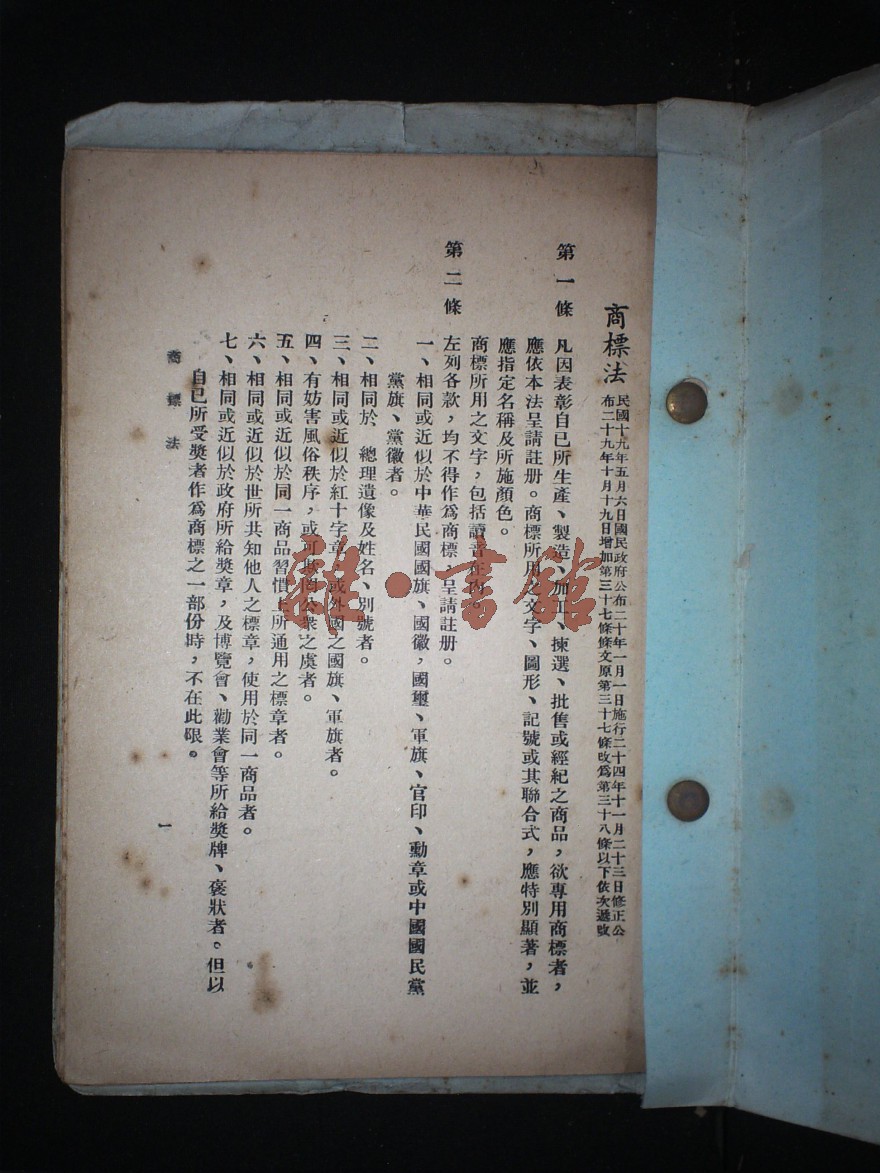 商標法
民國十九年五月六日國民政府公布二十年一月一日施行二十四年十一月二十三日修正公
布二十九年十月十九日增加第三十七條條文原第三十七條改爲第三十八條以下依次遞改
第一條 凡因表彰自己所生產、製造、加工、揀選、批售或經紀之商品，欲專用商標者，
應依本法呈請註册。商標所用之文字、圖形、記號或其聯合式，應特別顯著，並
應指定名稱及所施顏色。
商標所用之文字，包括讀音在內。
第二條 左列各款，均不得作爲商標，呈請註册。
一、相同或近似於中華民國國旗、國徽，國璽、軍旗、官印、勳章或中國國民黨
黨旗、黨徽者。
二、相同於 總理遺像及姓名、別號者。
三、相同或近似於紅十字章，或外國之國旗、軍旗者。
四、有妨害風俗秩序，或可欺罔公衆之虞者。
五、相同或近似於同一商品習慣上所通用之標章者。
六、相同或近似於世所共知他人之標章，使用於同一商品者。
七、相同或近似於政府所給獎章，及博覽會、勸業會等所給獎牌、褒狀者。但以
自己所受獎者作爲商標之一部份時，不在此限。
商標法
一
雜·書館